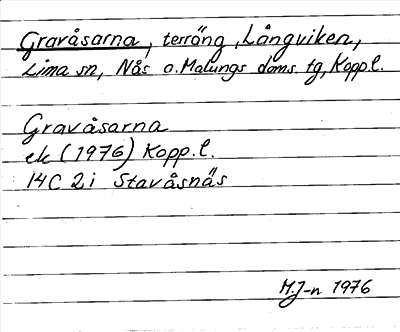 Gravåsarna, terräng, Långviken,
Lima sn, Nås o. Malungs doms. tg, Kopp.l.
Gravåsarna
ek (1976) Kopp.l.
14C 2i Stavåsnäs
M.J-n 1976